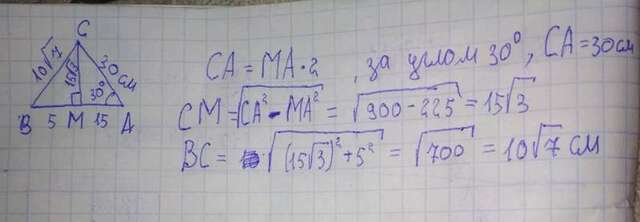 C
10√7
15√3
30 см
30°
B 5 M 15 A
CA = MA · 2, за углом 30°, CA = 30см
CM = √(CA² - MA²) = √(900 - 225) = 15√3
BC = √((15√3)² + 5²) = √700 = 10√7 см